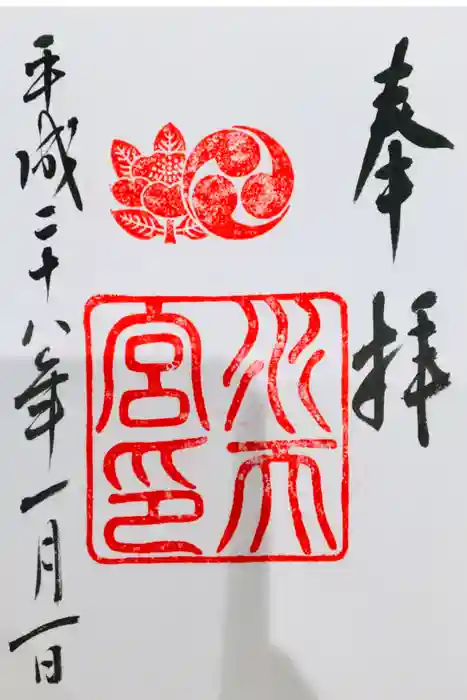 奉拝
水天宮印
平成二十八年一月一日